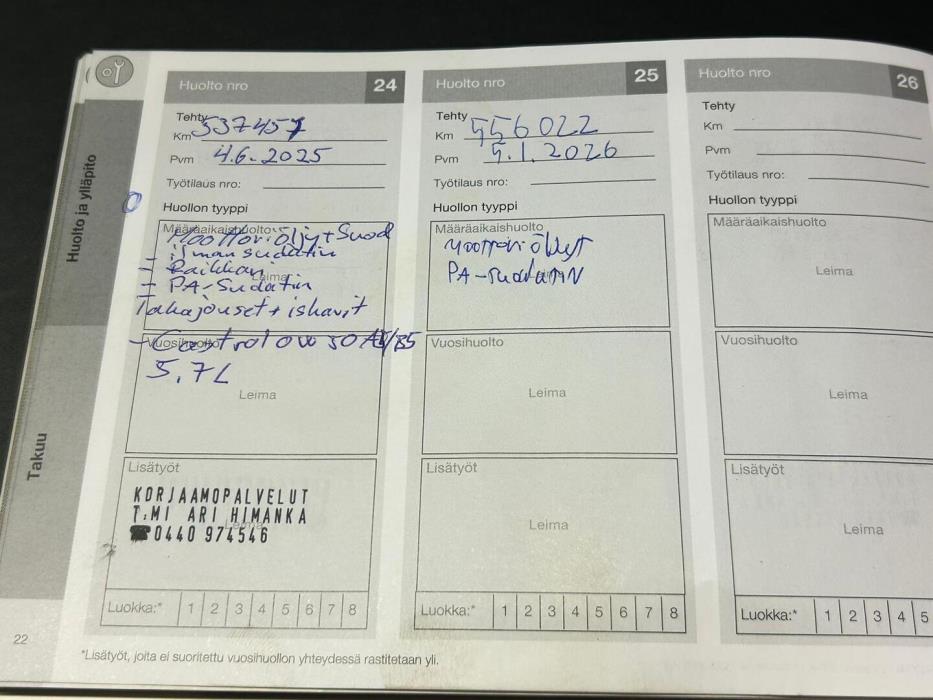 Huolto ja ylläpito
Takuu
Huolto nro 24
Tehty
Km 537457
Pvm 4.6.2025
Työtilaus nro:
Huollon tyyppi
Määräaikaishuolto
Moottoriöljy + Suod
- ilmansudatin
- Raikkan
- PA-Sudatin
Leima
Takajouset + iskarit
Vuosihuolto
- Castrol 0W30 A5/B5
5,7L
Leima
Lisätyöt
KORJAAMOPALVELUT
T:MI ARI HIMANKA
Leima
☎0440 974546
Luokka:* 1 2 3 4 5 6 7 8
Huolto nro 25
Tehty
Km 556022
Pvm 5.1.2026
Työtilaus nro:
Huollon tyyppi
Määräaikaishuolto
PA-SudatiN
Leima
Vuosihuolto
Leima
Lisätyöt
Leima
Luokka:* 1 2 3 4 5 6 7 8
Huolto nro 26
Tehty
Km
Pvm
Työtilaus nro:
Huollon tyyppi
Määräaikaishuolto
Leima
Vuosihuolto
Leima
Lisätyöt
Leima
Luokka:* 1 2 3 4 5
22
*Lisätyöt, joita ei suoritettu vuosihuollon yhteydessä rastitetaan yli.